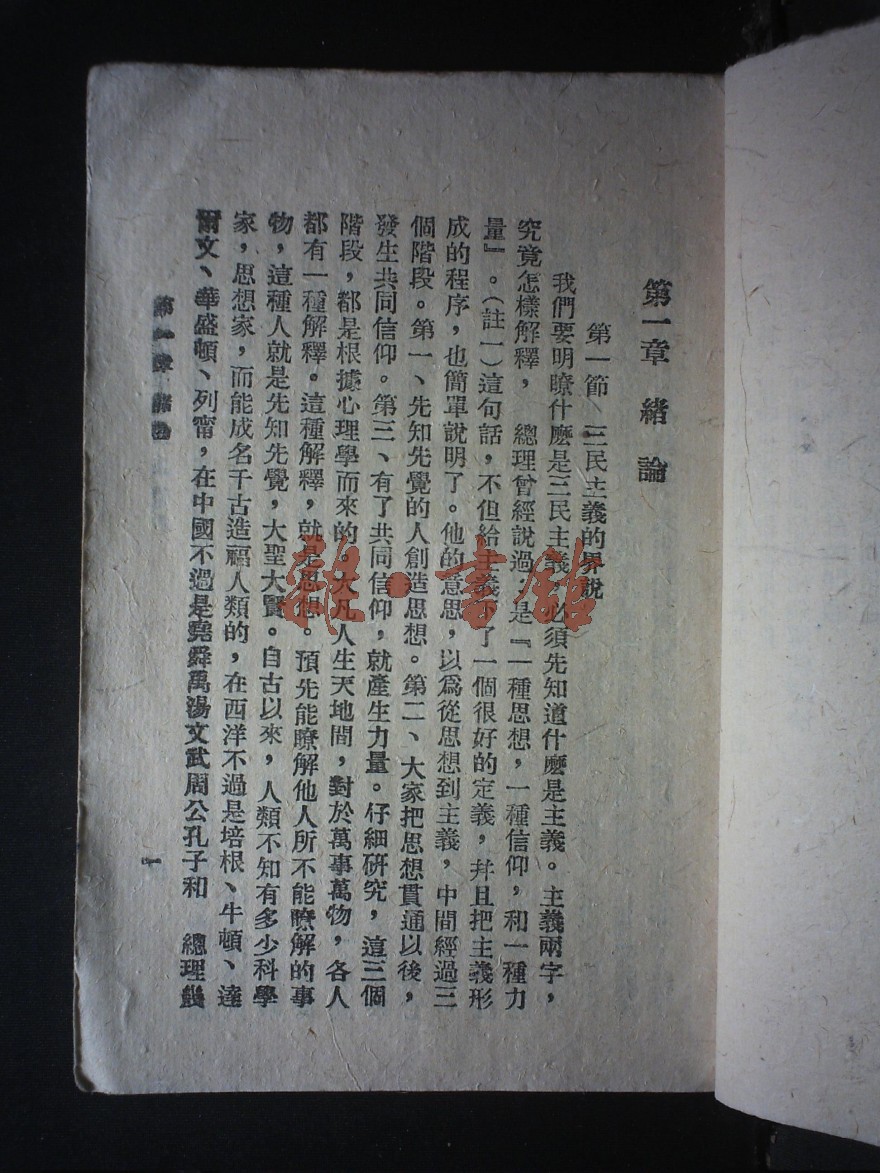 第一章　緒論
第一節　三民主義的界說
我們要明瞭什麽是三民主義，必須先知道什麽是主義。主義兩字，
究竟怎樣解釋，　總理曾經說過，是『一種思想，一種信仰，和一種力
量』。（註一）這句話，不但給主義下了一個很好的定義，幷且把主義形
成的程序，也簡單說明了。他的意思，以爲從思想到主義，中間經過三
個階段。第一、先知先覺的人創造思想。第二、大家把思想貫通以後，
發生共同信仰。第三、有了共同信仰，就產生力量。仔細研究，這三個
階段，都是根據心理學而來的。大凡人生天地間，對於萬事萬物，各人
都有一種解釋。這種解釋，就是思想。預先能瞭解他人所不能瞭解的事
物，這種人就是先知先覺，大聖大賢。自古以來，人類不知有多少科學
家，思想家，而能成名千古造福人類的，在西洋不過是培根、牛頓、達
爾文、華盛頓、列甯，在中國不過是堯舜禹湯文武周公孔子和　總理幾
第一章　緒論
一
雜·書館